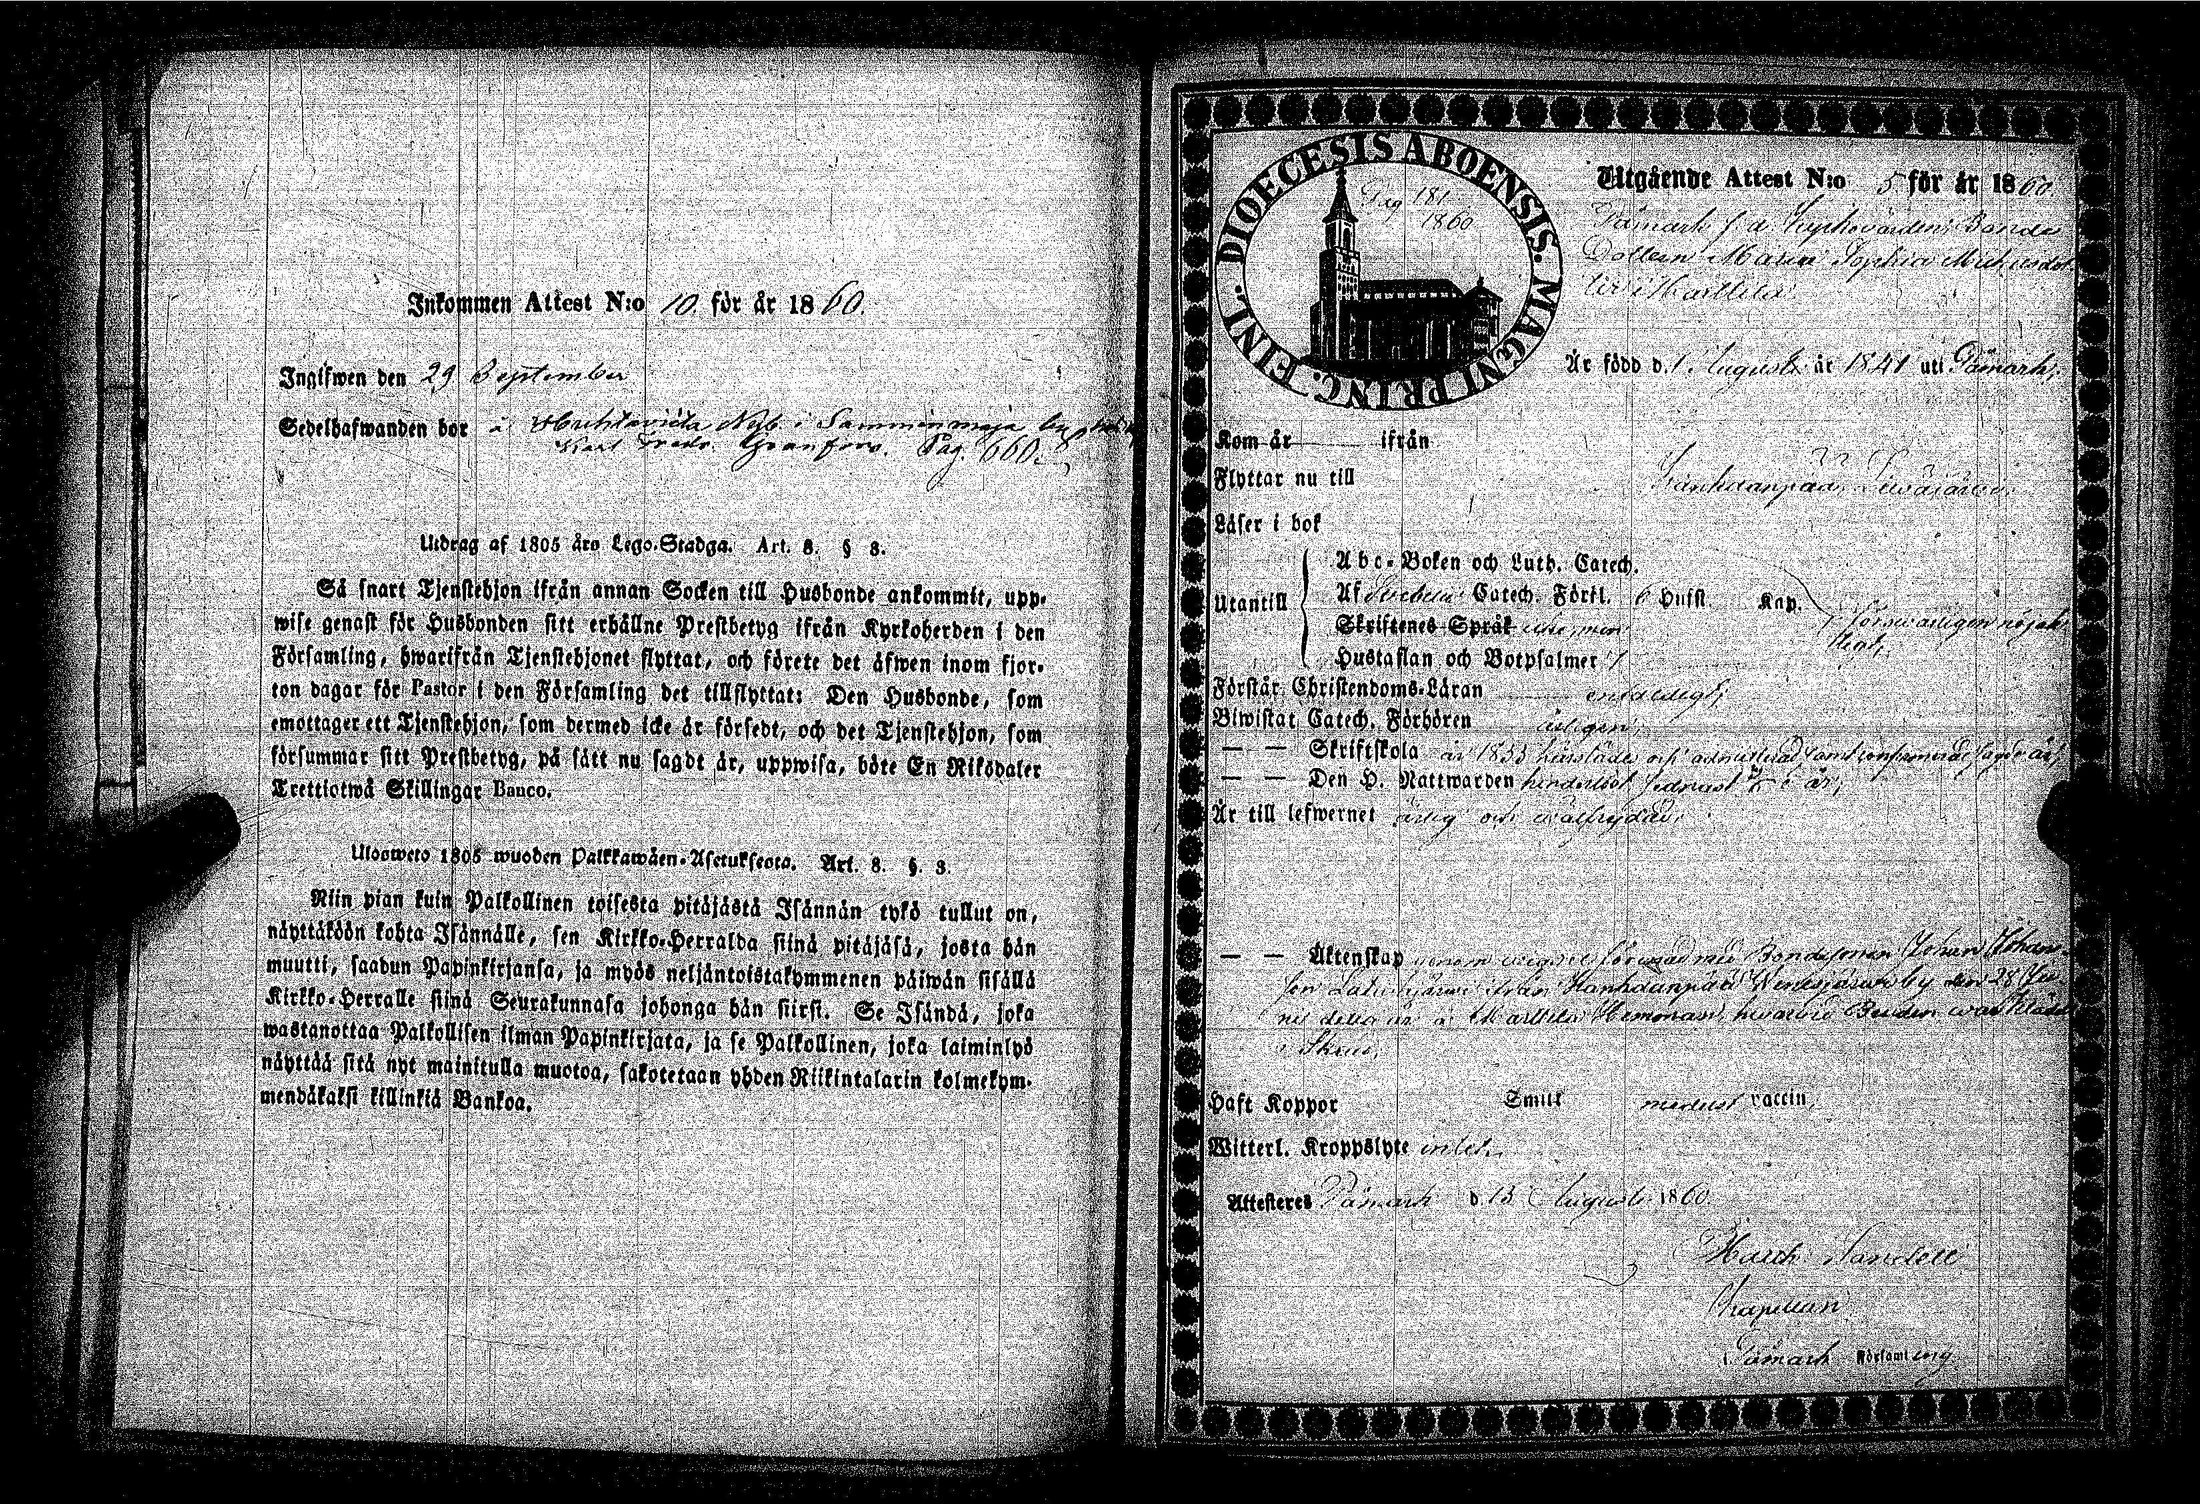 Inkommen Attest N:o 10. för år 1860.
Ingifwen den 29 September
Sedelhafwanden bor å Nyb. i Samminmaja by
Karl Fredr. Granfors. Pag. 660.
Utdrag af 1805 års Lego-Stadga. Art. 8. § 8.
Så snart Tjenstehjon ifrån annan Socken till Husbonde ankommit, upp-
wise genast för Husbonden sitt erhållne Prestbetyg ifrån Kyrkoherden i den
Församling, hwarifrån Tjenstehjonet flyttat, och förete det äfwen inom fjor-
ton dagar för Pastor i den Församling det tillflyttat: Den Husbonde, som
emottager ett Tjenstehjon, som dermed icke är försedt, och det Tjenstehjon, som
försummar sitt Prestbetyg, på sätt nu sagdt är, uppwisa, böte En Riksdaler
Trettiotwå Skillingar Banco.
Ulosweto 1805 wuoden Palkkawäen-Asetuksesta. Art. 8. §. 8.
Niin pian kuin Palkollinen toisesta pitäjästä Isännän tykö tullut on,
näyttäköön kohta Isännälle, sen Kirkko-Herralda siinä pitäjäsä, josta hän
muutti, saadun Papinkirjansa, ja myös neljäntoistakymmenen päiwän sisällä
Kirkko-Herralle siinä Seurakunnasa johonga hän siirsi. Se Isändä, joka
wastanottaa Palkollisen ilman Papinkirjata, ja se Palkollinen, joka laiminlyö
näyttää sitä nyt mainitulla muotoa, sakotetaan yhden Riikintalarin kolmekym-
mendäkaksi killinkiä Bankoa.
DIOECESIS ABOENSIS. MAGNI PRINC. FINL.
Pag 181
1860
Utgående Attest N:o 5 för år 1860.
Påmark f.d. Bonde
Dottern Maria Sophia
Är född d. 1 Augusti år 1841 uti Påmark,
Kom år ifrån
Flyttar nu till Kankaanpää,
Läser i bok
Utantill
Abc-Boken och Luth. Catech.
Af Catech. Förkl. 6 Hufst. Kap.
Skriftenes Språk
försvarligen nöjak
Hustaflan och Botpsalmer
Förstår Christendoms-Läran enfaldigt,
Biwistat Catech. Förhören årligen,
— — Skriftskola år 1855 härstädes och admitterad samt confirmerad sagde år,
— — Den H. Nattwarden
Är till lefwernet ärlig och wälfrejdad.
— — Äktenskap genom wigsel förenad med Bondesonen Johan Johans-
son från Kankaanpää by den 28 Ju-
nii detta år å Marttila Hemman, hwarwid Bruden war klädd
i Skrud.
Haft Koppor Smitt medelst vaccin,
Witterl. Kroppslyte intet.
Attesteres Påmark d. 13 Augusti 1860
Sandell
Kapellan
Påmark Församling